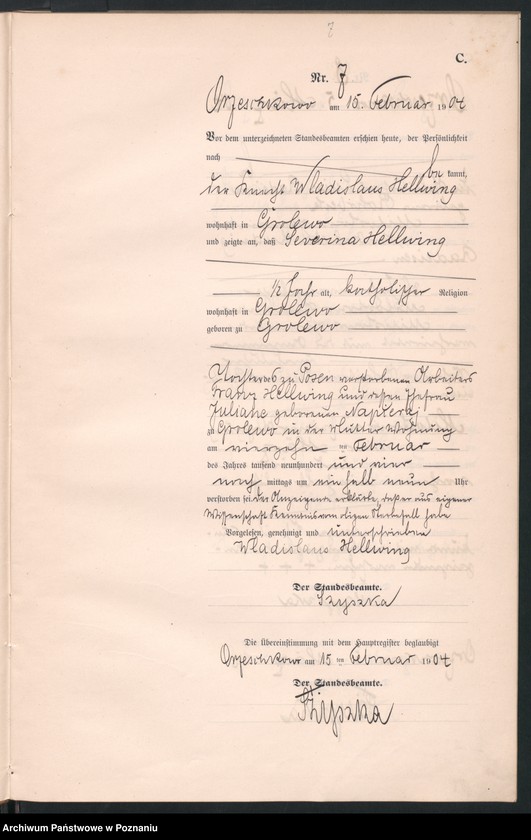 7
C.
Nr. 7
Orzeschkowo am 15. Februar 1904
Vor dem unterzeichneten Standesbeamten erschien heute, der Persönlichkeit
nach
be kannt,
der Knecht Wladislaus Hellwing
wohnhaft in Grolewo
und zeigte an, daß Severina Hellwing
½ Jahr alt, katholischer Religion
wohnhaft in Grolewo
geboren zu Grolewo
Tochter des zu Posen verstorbenen Arbeiters
Franz Hellwing und dessen Ehefrau
Juliane geborenen Napieraj
zu Grolewo in der Mutter Wohnung
am vierzehn ten Februar
des Jahres tausend neunhundert und vier
nach mittags um ein halb neun Uhr
verstorben sei. Der Anzeigende erklärte, daß er aus eigener
Wissenschaft Kenntnis von diesem Sterbefall habe
Vorgelesen, genehmigt und unterschrieben
Wladislaus Hellwing
Der Standesbeamte.
Szyszka
Die Übereinstimmung mit dem Hauptregister beglaubigt
Orzeschkowo am 15 ten Februar 1904
Der Standesbeamte.
Szyszka
Archiwum Państwowe w Poznaniu